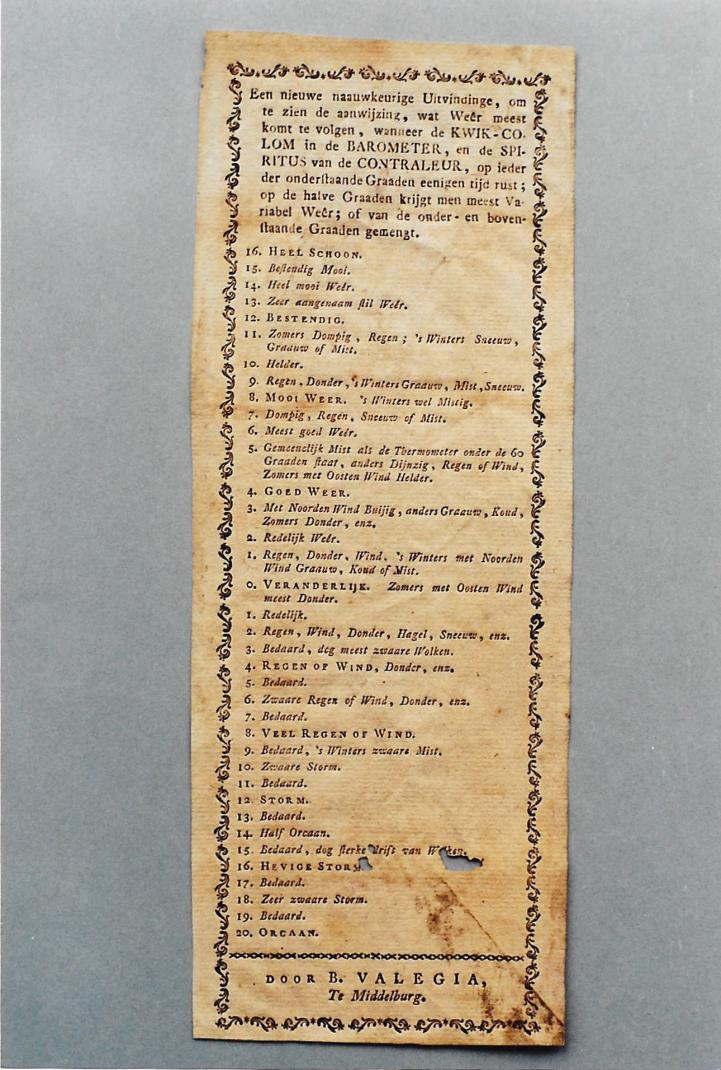 Een nieuwe naauwkeurige Uitvindinge, om
te zien de aanwijzing, wat Weêr meest
komt te volgen, wanneer de KWIK-CO-
LOM in de BAROMETER, en de SPI-
RITUS van de CONTRALEUR, op ieder
der onderstaande Graaden eenigen tijd rust;
op de halve Graaden krijgt men meest Va-
riabel Weêr; of van de onder- en boven-
staande Graaden gemengt.
16. HEEL SCHOON.
15. Bestendig Mooi.
14. Heel mooi Weêr.
13. Zeer aangenaam stil Weêr.
12. BESTENDIG.
11. Zomers Dompig, Regen; 's Winters Sneeuw,
Graauw of Mist.
10. Helder.
9. Regen, Donder, 's Winters Graauw, Mist, Sneeuw.
8. MOOI WEER. 's Winters wel Mistig.
7. Dompig, Regen, Sneeuw of Mist.
6. Meest goed Weêr.
5. Gemeenelijk Mist als de Thermometer onder de 60
Graaden staat, anders Dijnzig, Regen of Wind,
Zomers met Oosten Wind Helder.
4. GOED WEER.
3. Met Noorden Wind Buijig, anders Graauw, Koud,
Zomers Donder, enz.
2. Redelijk Weêr.
1. Regen, Donder, Wind, 's Winters met Noorden
Wind Graauw, Koud of Mist.
0. VERANDERLIJK. Zomers met Oosten Wind
meest Donder.
1. Redelijk.
2. Regen, Wind, Donder, Hagel, Sneeuw, enz.
3. Bedaard, dog meest zwaare Wolken.
4. REGEN OF WIND, Donder, enz.
5. Bedaard.
6. Zwaare Regen of Wind, Donder, enz.
7. Bedaard.
8. VEEL REGEN OF WIND.
9. Bedaard, 's Winters zwaare Mist.
10. Zwaare Storm.
11. Bedaard.
12. STORM.
13. Bedaard.
14. Half Orcaan.
15. Bedaard, dog sterke drift van Wolken.
16. HEVIGE STORM
17. Bedaard.
18. Zeer zwaare Storm.
19. Bedaard.
20. ORCAAN.
DOOR B. VALEGIA,
Te Middelburg.